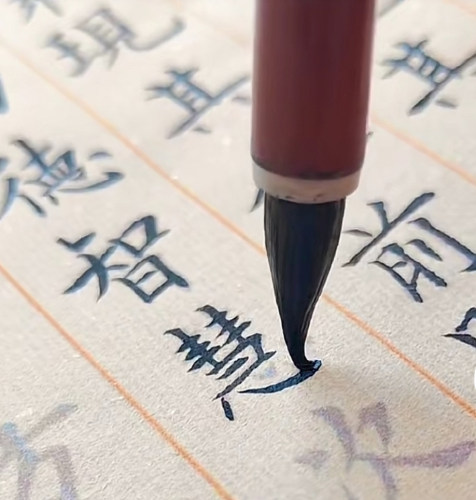 其
現其前
德智慧